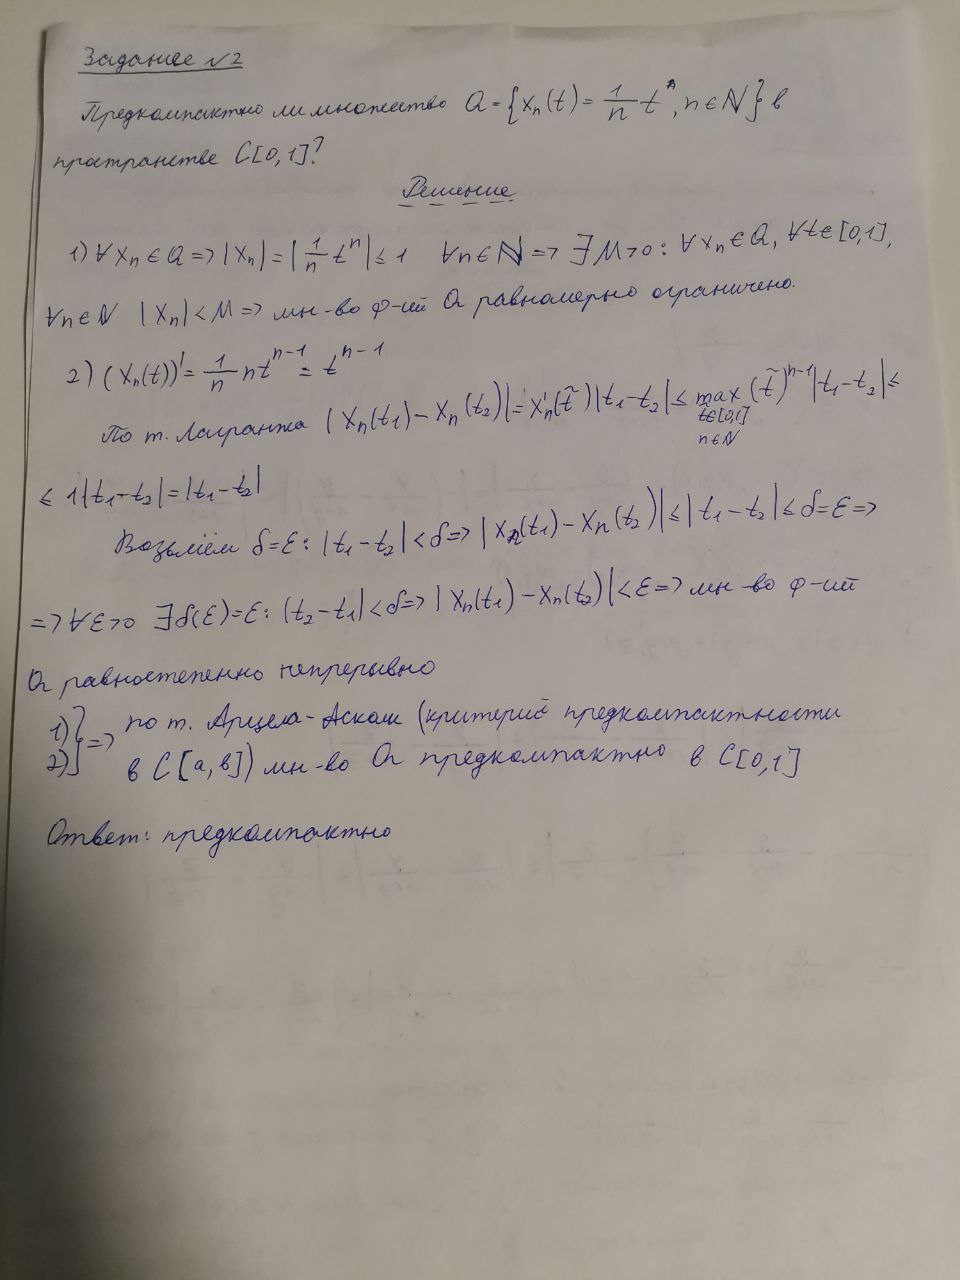 Задание №2
Предкомпактно ли множество a = {xₙ(t) = 1/n tⁿ, n ∈ N} в
пространстве C[0,1]?
Решение
1) ∀ xₙ ∈ a => |xₙ| = |1/n tⁿ| ≤ 1 ∀n ∈ N => ∃ M>0 : ∀ xₙ ∈ a, ∀t∈[0,1],
∀n ∈ N |xₙ| < M => мн-во ф-ий a равномерно ограничено.
2) (xₙ(t))' = 1/n ntⁿ⁻¹ = tⁿ⁻¹
По т. Лагранжа |xₙ(t₁) - xₙ(t₂)| = x'ₙ(t̃)|t₁-t₂| ≤ max (t̃)ⁿ⁻¹|t₁-t₂| ≤
t̃∈[0,1]
n∈N
≤ 1|t₁-t₂| = |t₁-t₂|
Возьмём δ=ε: |t₁-t₂| < δ => |xₙ(t₁) - xₙ(t₂)| ≤ |t₁-t₂| ≤ δ=ε =>
=> ∀ε>0 ∃δ(ε)=ε: (t₂-t₁| < δ => |xₙ(t₁) - xₙ(t₂)| < ε => мн-во ф-ий
a равностепенно непрерывно
1) 2) } => по т. Арцела-Асколи (критерий предкомпактности
в C[a,в]) мн-во a предкомпактно в C[0,1]
Ответ: предкомпактно